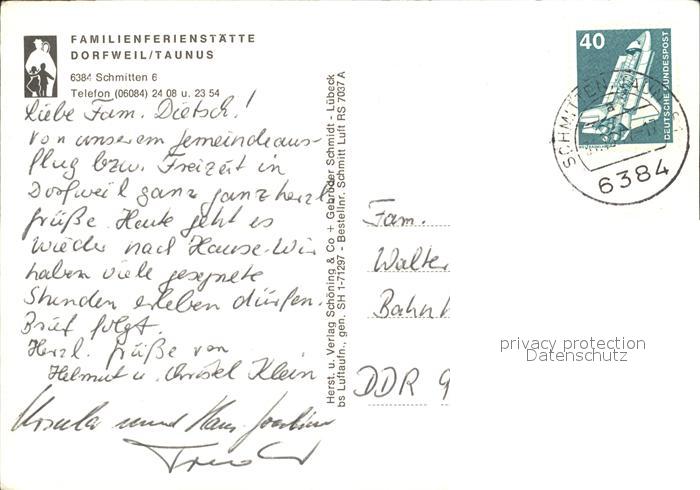 FAMILIENFERIENSTÄTTE
DORFWEIL/TAUNUS
6384 Schmitten 6
Telefon (06084) 24 08 u. 23 54
Liebe Fam. Dietsch!
Von unserem Gemeindeaus-
flug bzw. Freizeit in
Dorfweil ganz ganz herzl.
Grüße. Heute geht es
wieder nach Hause. Wir
haben viele gesegnete
Stunden erleben dürfen.
Brief folgt.
Herzl. Grüße von
Helmut u. Christel Klein
Ursula und Hans Joachim
Herst. u. Verlag Schöning & Co + Gebrüder Schmidt - Lübeck
bs Luftaufn., gen. SH 1-71297 - Bestellnr. Schmitt Luft RS 7037 A
40
DEUTSCHE BUNDESPOST
SCHMITTEN, TAUNUS 1
6384
Fam.
Walter
Bahnh
DDR 9
privacy protection
Datenschutz